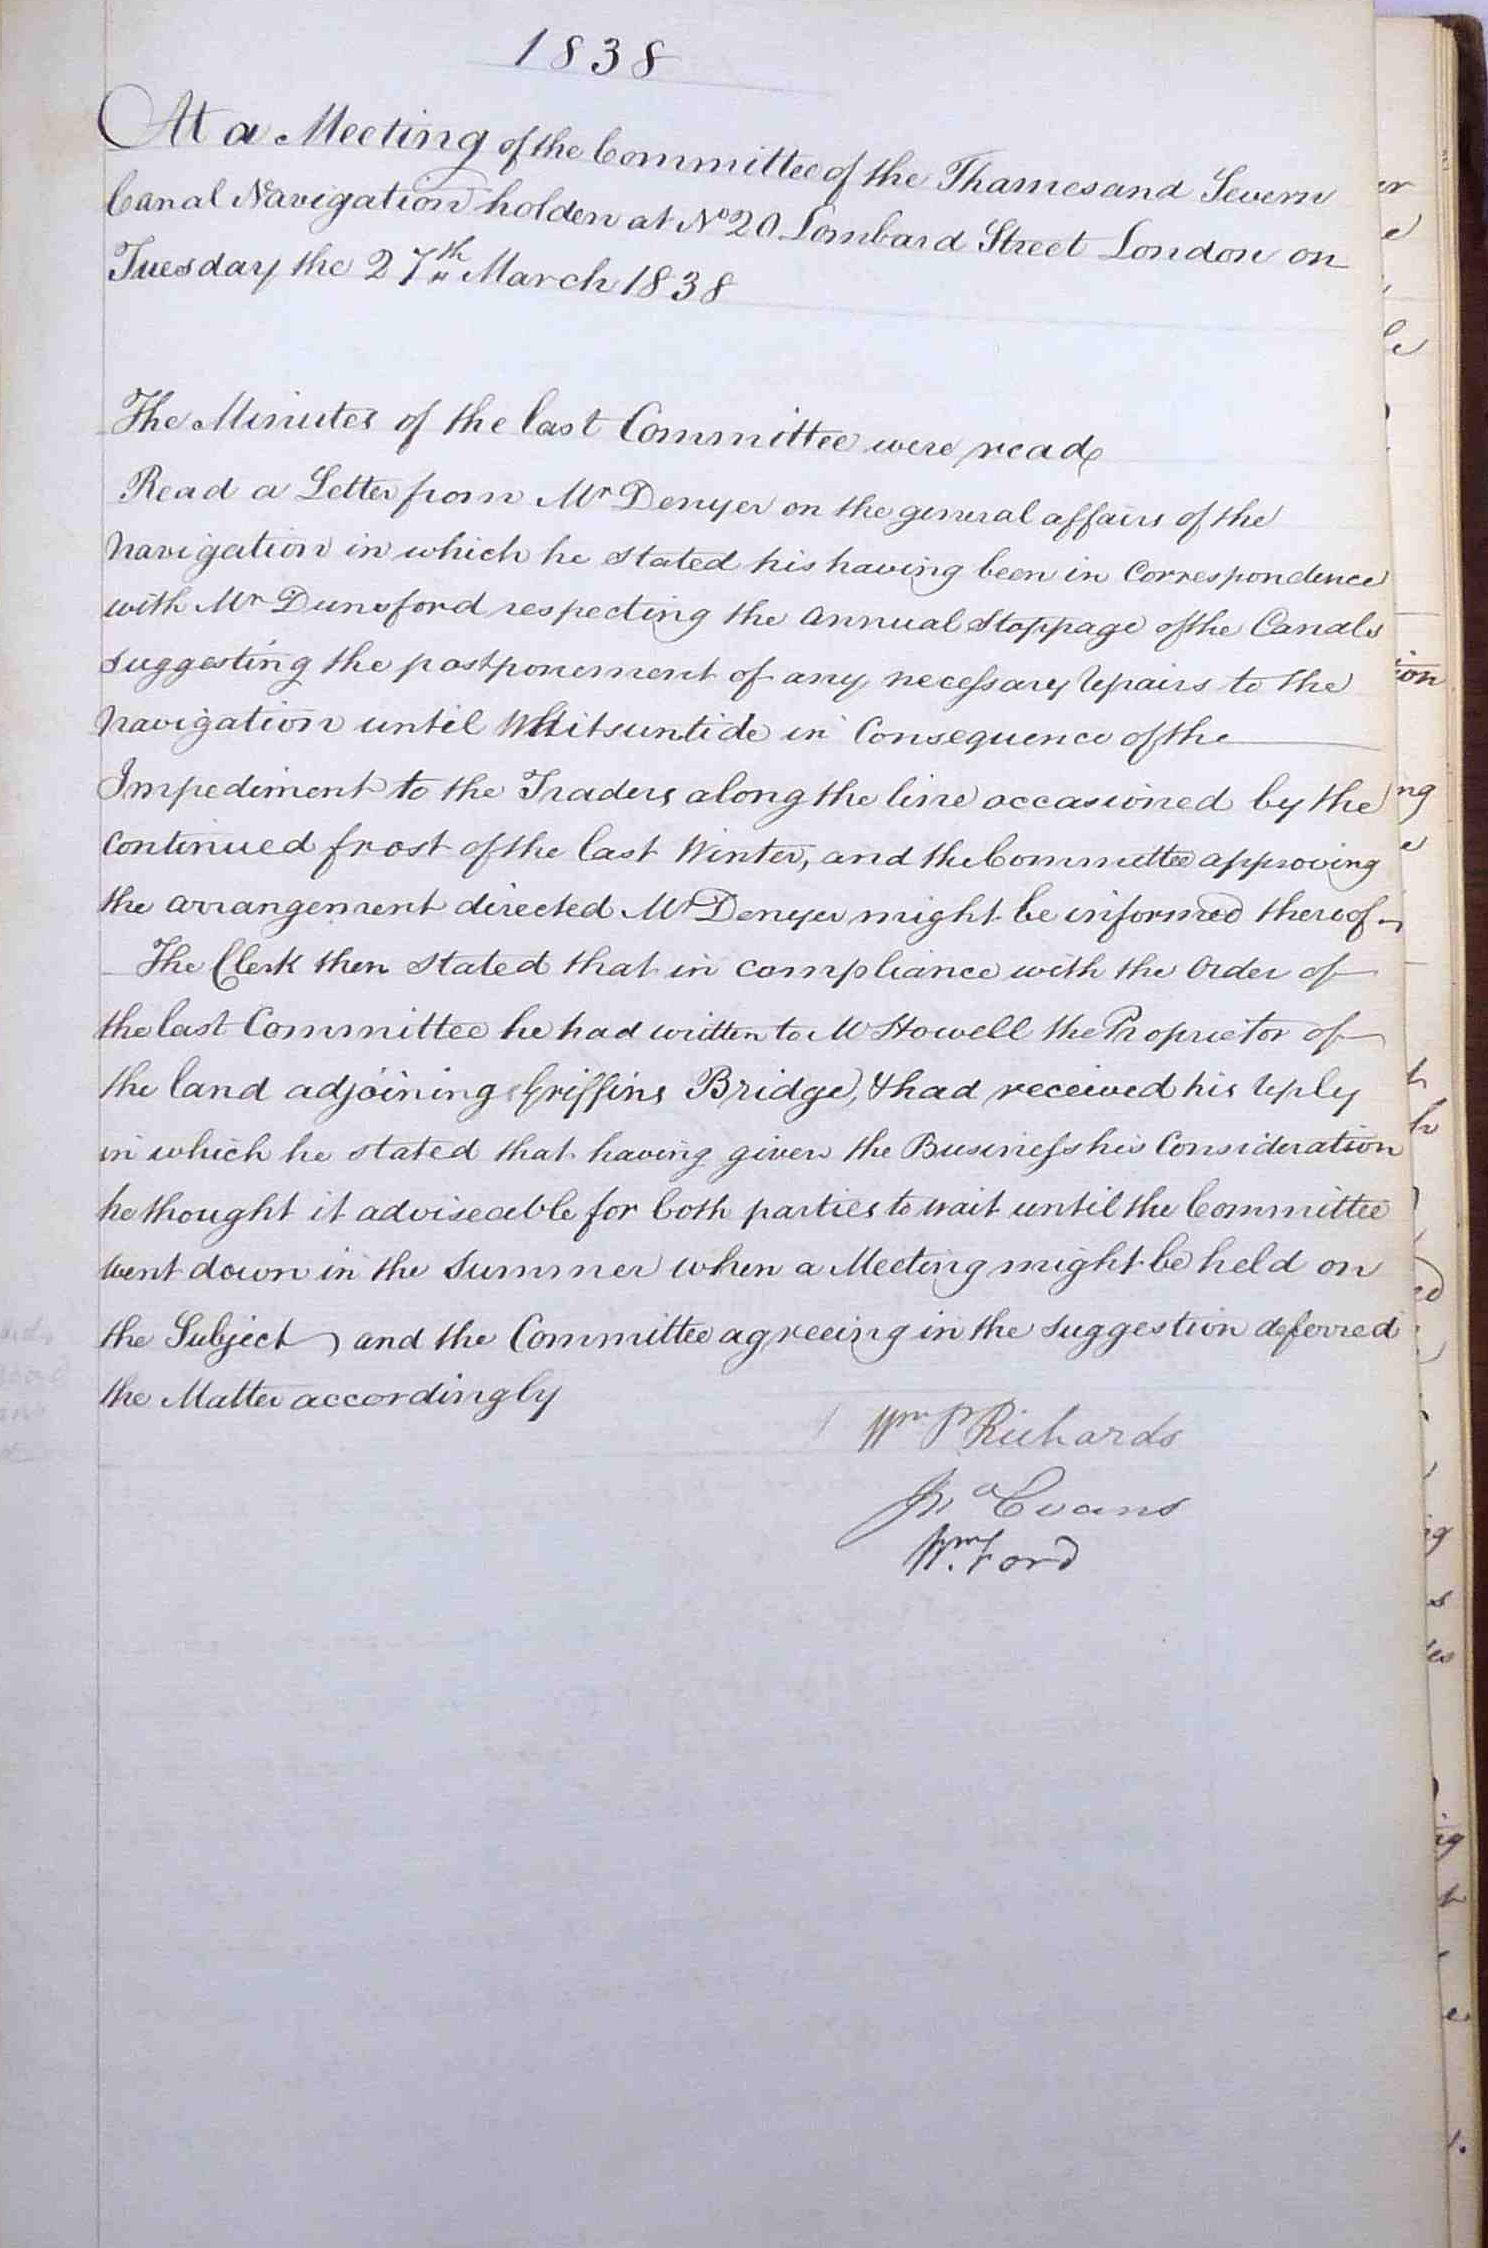 1838
At a Meeting of the Committee of the Thames and Severn
Canal Navigation holden at No 20 Lombard Street London on
Tuesday the 27th March 1838
The Minutes of the last Committee were read
Read a Letter from Mr Denyer on the general affairs of the
Navigation in which he stated his having been in Correspondence
with Mr Dunsford respecting the Annual Stoppage of the Canals
suggesting the postponement of any necessary repairs to the
Navigation until Whitsuntide in Consequence of the
Impediment to the Traders along the line occasioned by the
continued frost of the last Winter, and the Committee approving
the arrangement directed Mr Denyer might be informed thereof
The Clerk then stated that in compliance with the Order of
the last Committee he had written to Mr Howell the Proprietor of
the land adjoining Griffins Bridge, & had received his reply
in which he stated that having given the Business his Consideration
he thought it adviseable for both parties to wait until the Committee
went down in the Summer when a Meeting might be held on
the Subject, and the Committee agreeing in the suggestion deferred
the Matter accordingly
Wm P Richards
Jna Evans
Wm Ford